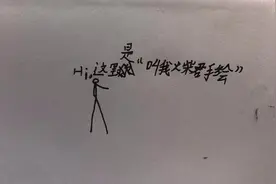 是
Hi,这里“叫我火柴君手绘”